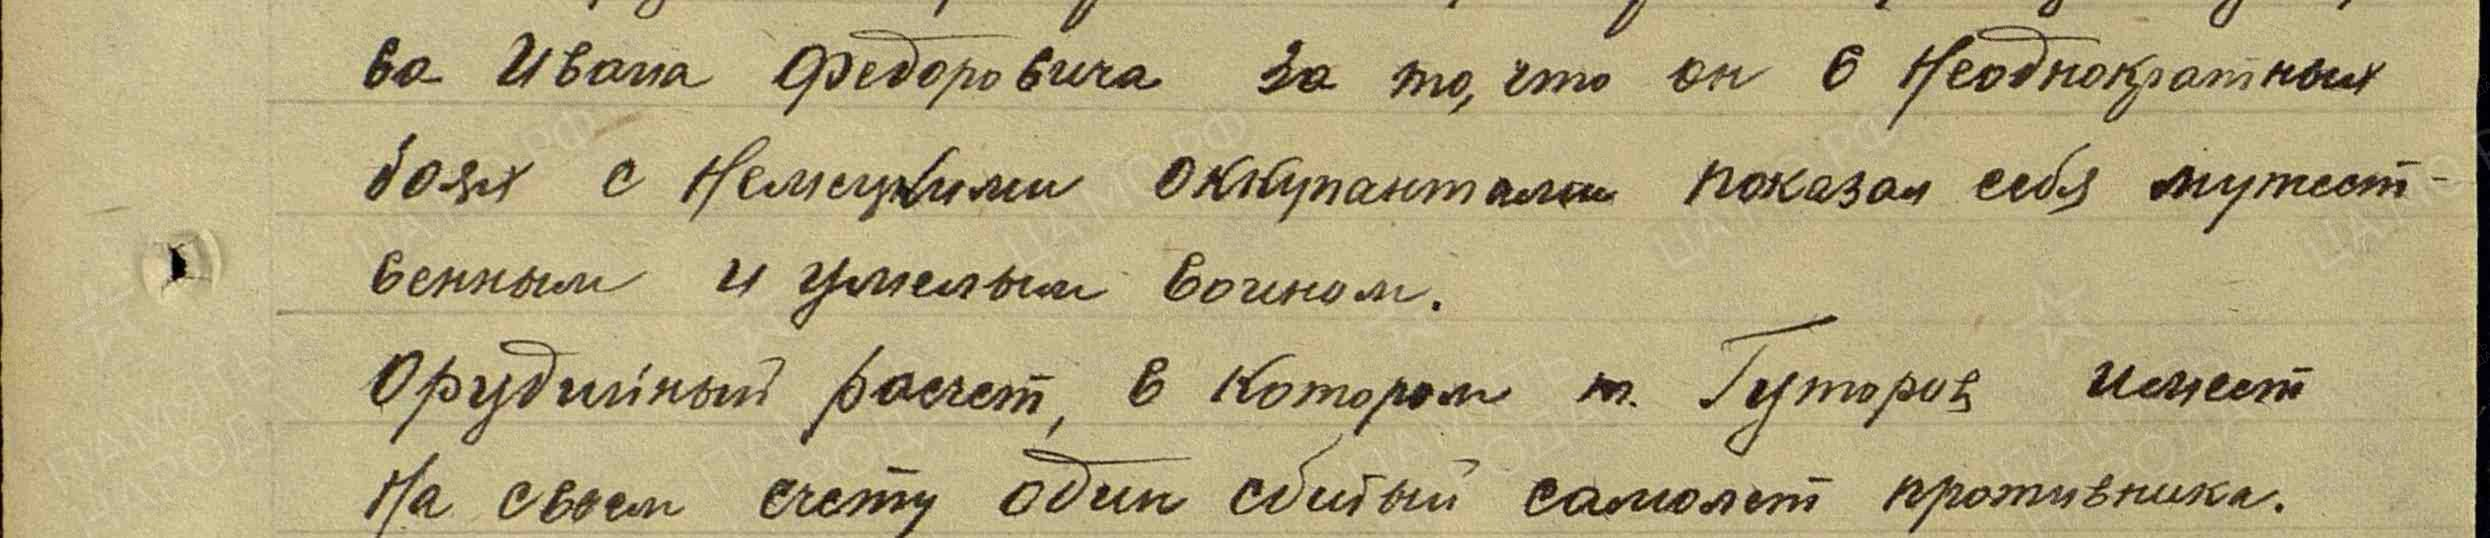 ва Ивана Федоровича за то, что он в неоднократных
боях с немецкими оккупантами показал себя мужест-
венным и умелым воином.
Орудийный расчет, в котором т. Гуторов имеет
на своем счету один сбитый самолет противника.